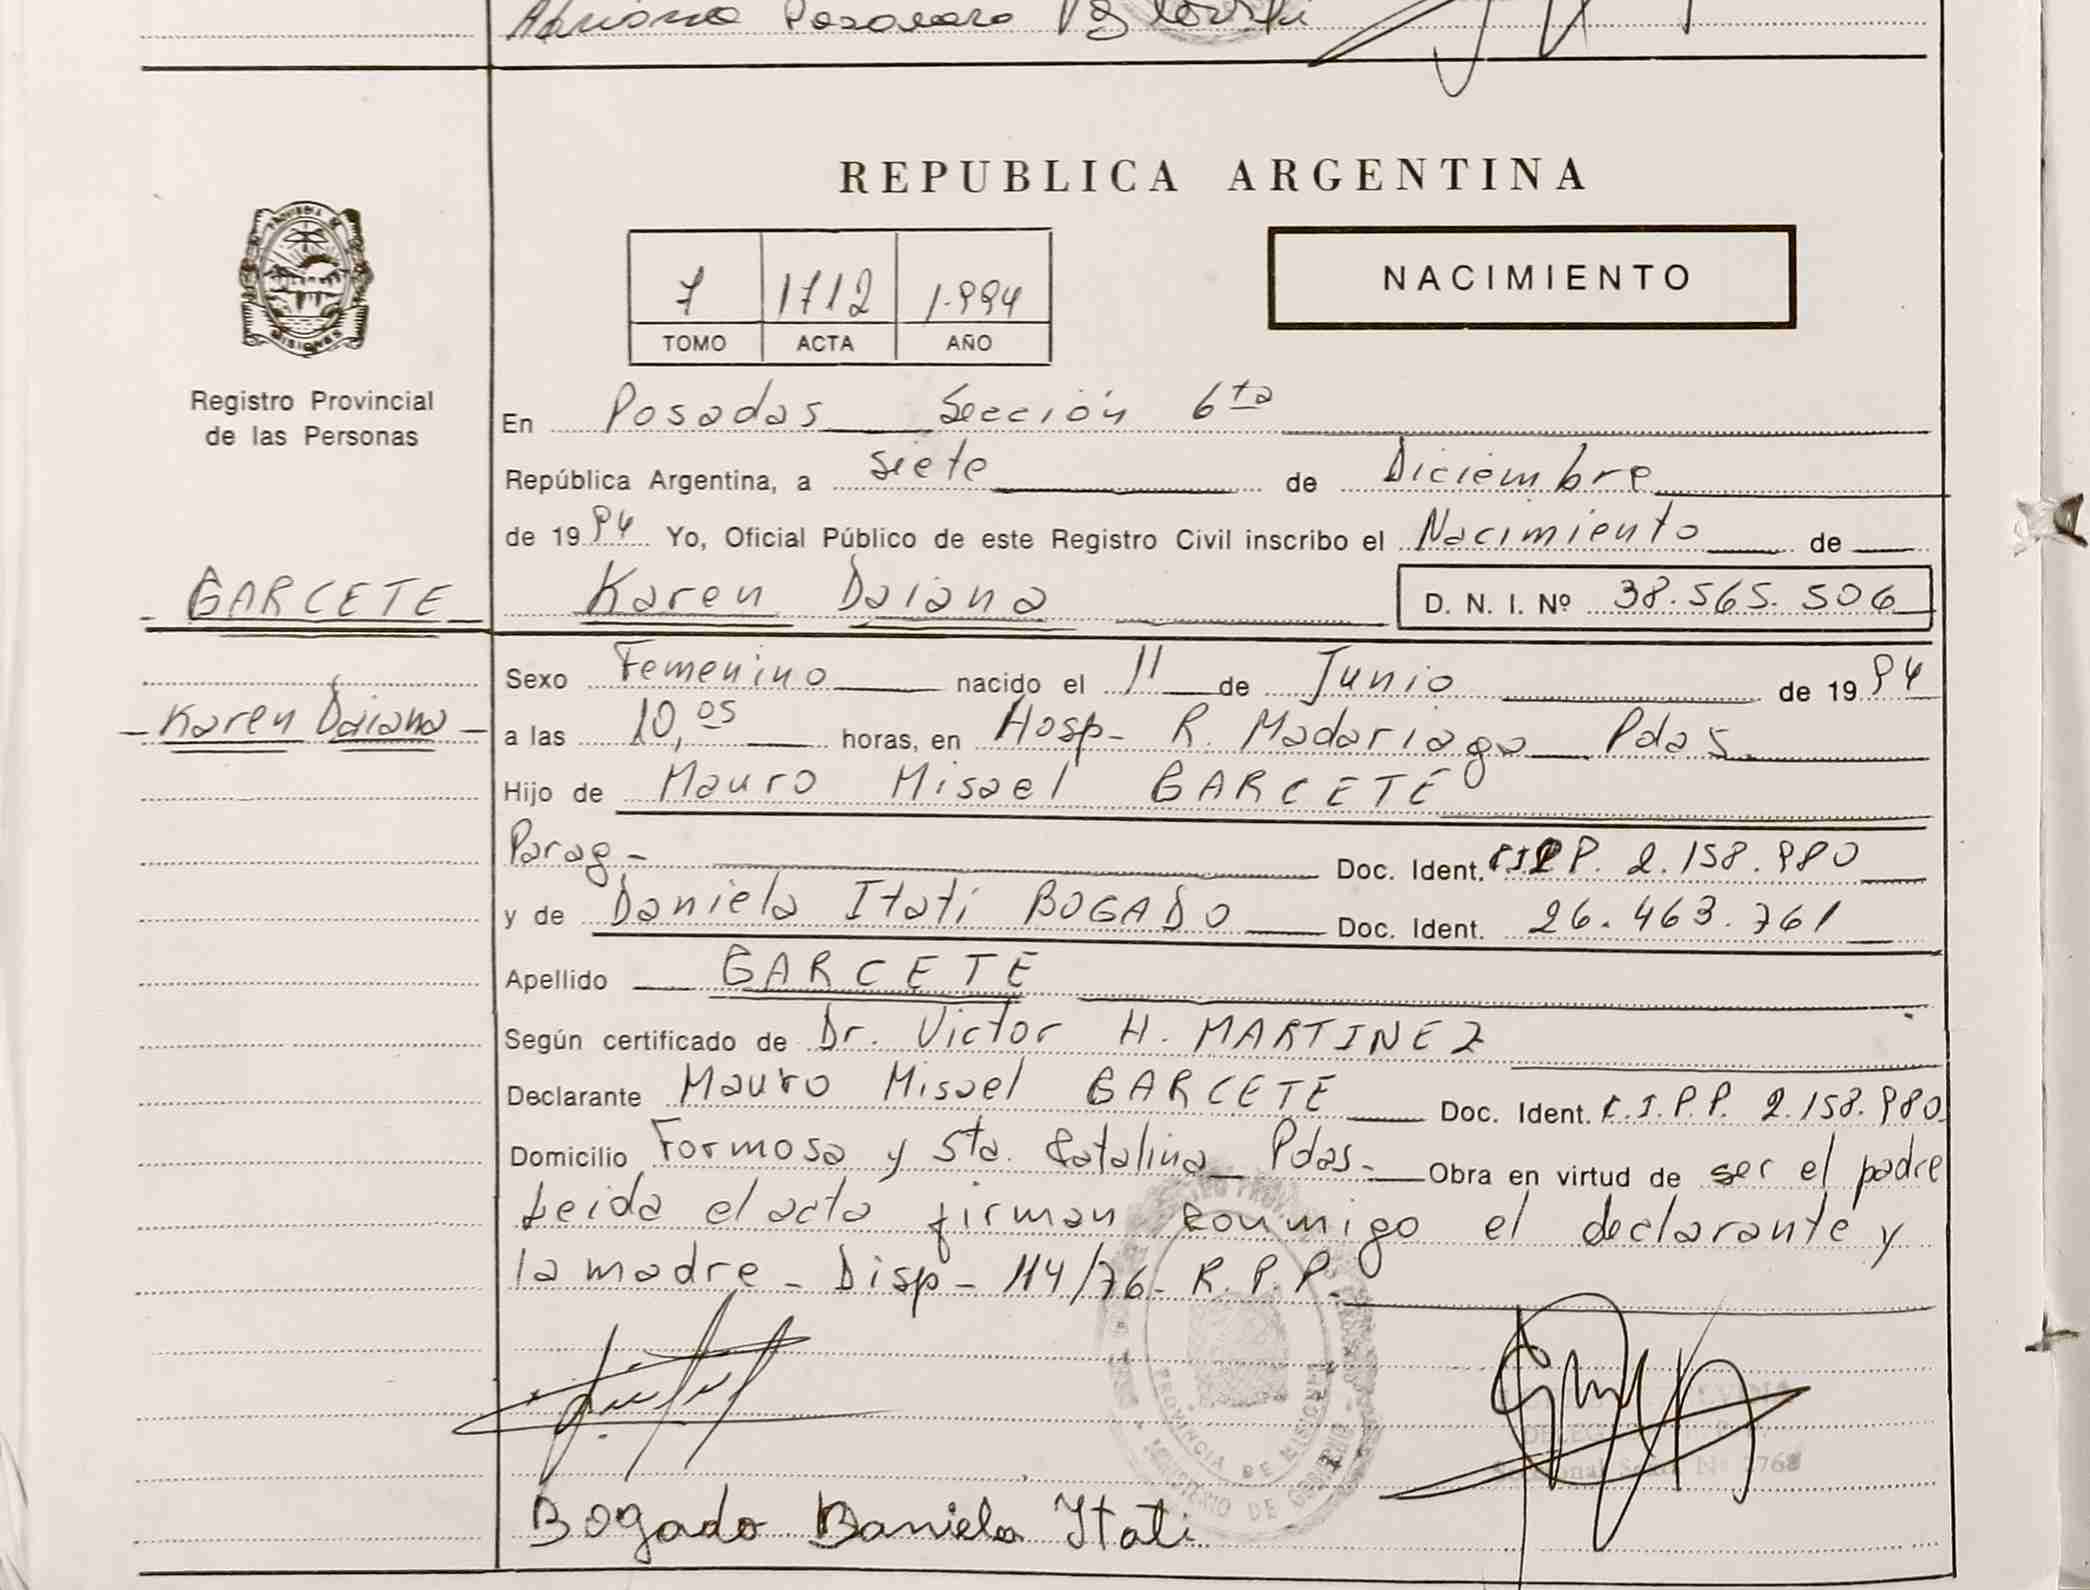 Adriana
REPUBLICA ARGENTINA
7 1712 1.994
TOMO ACTA AÑO
NACIMIENTO
MISIONES
Registro Provincial
de las Personas
En Posadas Sección 6ta
República Argentina, a siete de Diciembre
de 1994 Yo, Oficial Público de este Registro Civil inscribo el Nacimiento de
GARCETE Karen Daiana D. N. I. Nº 38.565.506
Sexo Femenino nacido el 11 de Junio de 1994
Karen Daiana
a las 10,05 horas, en Hosp- R. Madariaga Pdas.
Hijo de Mauro Misael GARCETE
Parag- Doc. Ident. P. 2.158.980
y de Daniela Itatí BOGADO Doc. Ident. 26.463.761
Apellido GARCETE
Según certificado de Dr. Victor H. MARTINEZ
Declarante Mauro Misael GARCETE Doc. Ident. C.I.P.P. 2.158.980
Domicilio Formosa y Sta. Catalina Pdas- Obra en virtud de ser el padre
Leida el acta firman conmigo el declarante y
la madre - Disp- 114/76- R.P.P.-
PROVINCIA DE MISIONES
MINISTERIO DE GOBIERNO
Bogado Daniela Itati